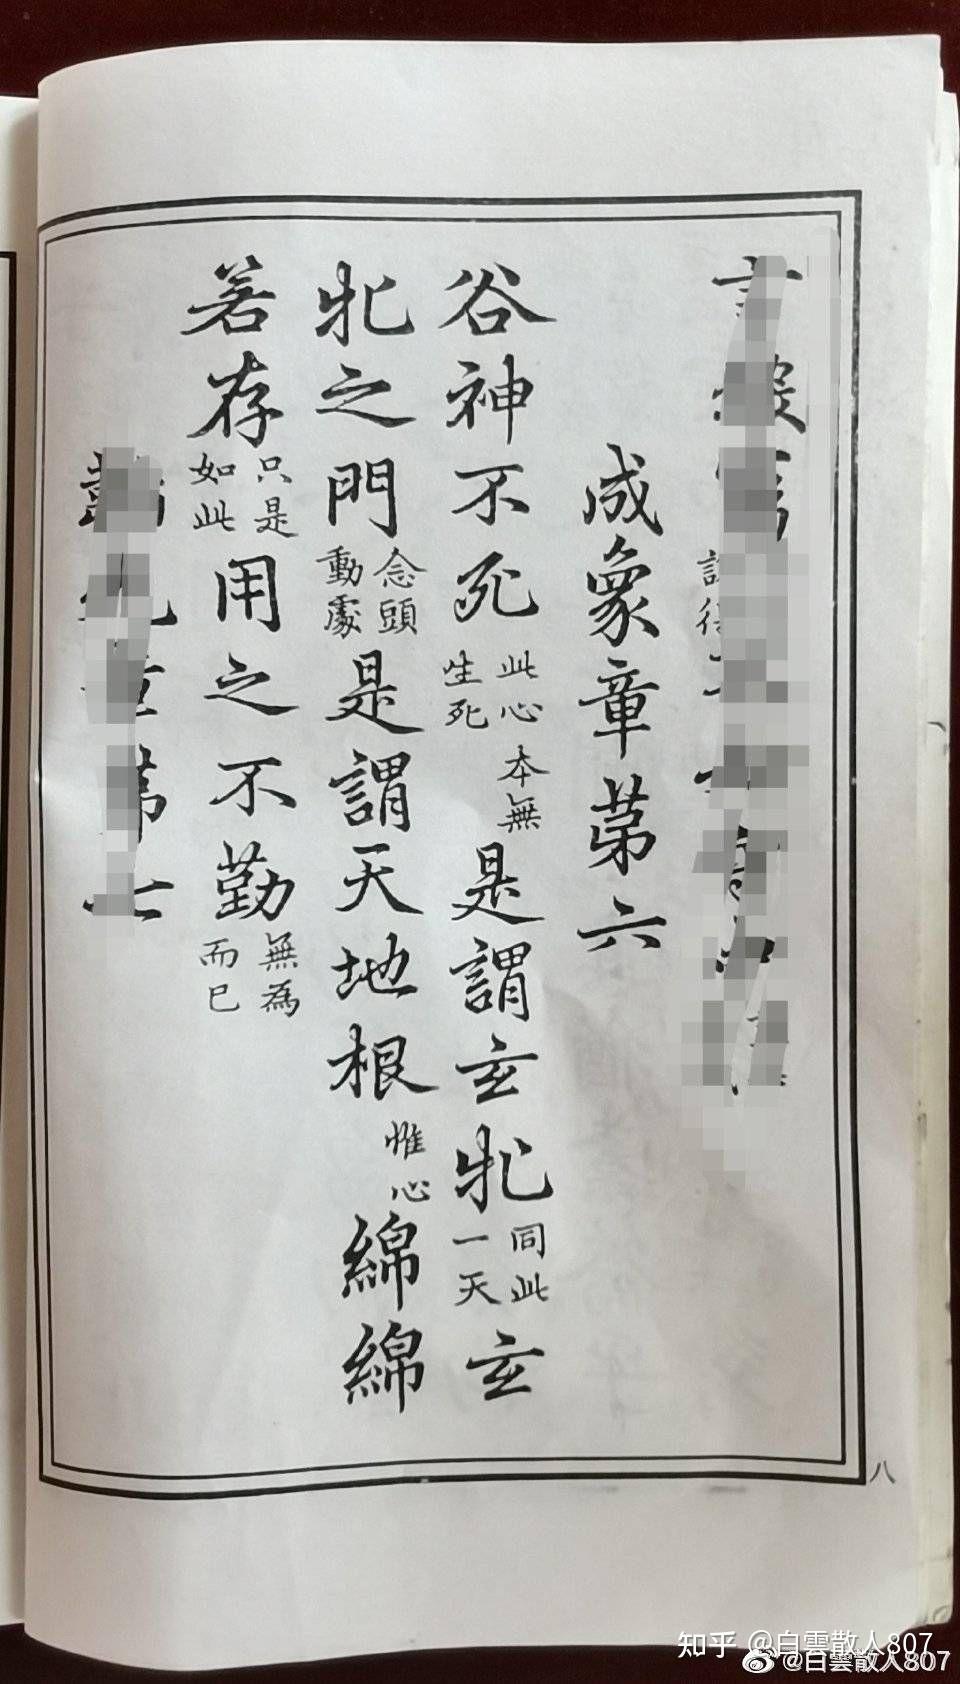 成象章第六
谷神不死此心生死本無是謂玄牝同此一天玄
牝之門念頭動處是謂天地根惟心綿綿
若存只是如此用之不勤無為而已
八
知乎 @白雲散人807
@白雲散人807